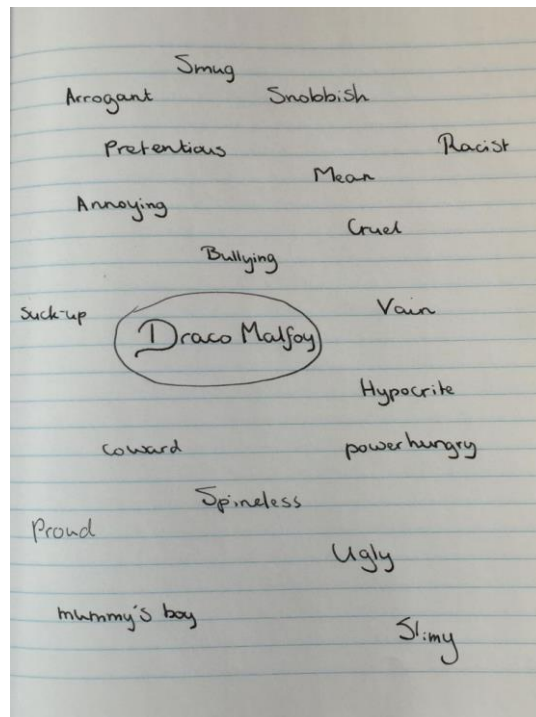 Smug
Arrogant Snobbish
Pretentious Racist
Mean
Annoying
Cruel
Bullying
Suck-up Vain
Draco Malfoy
Hypocrite
coward power hungry
Spineless
Proud
Ugly
mummy's boy
Slimy